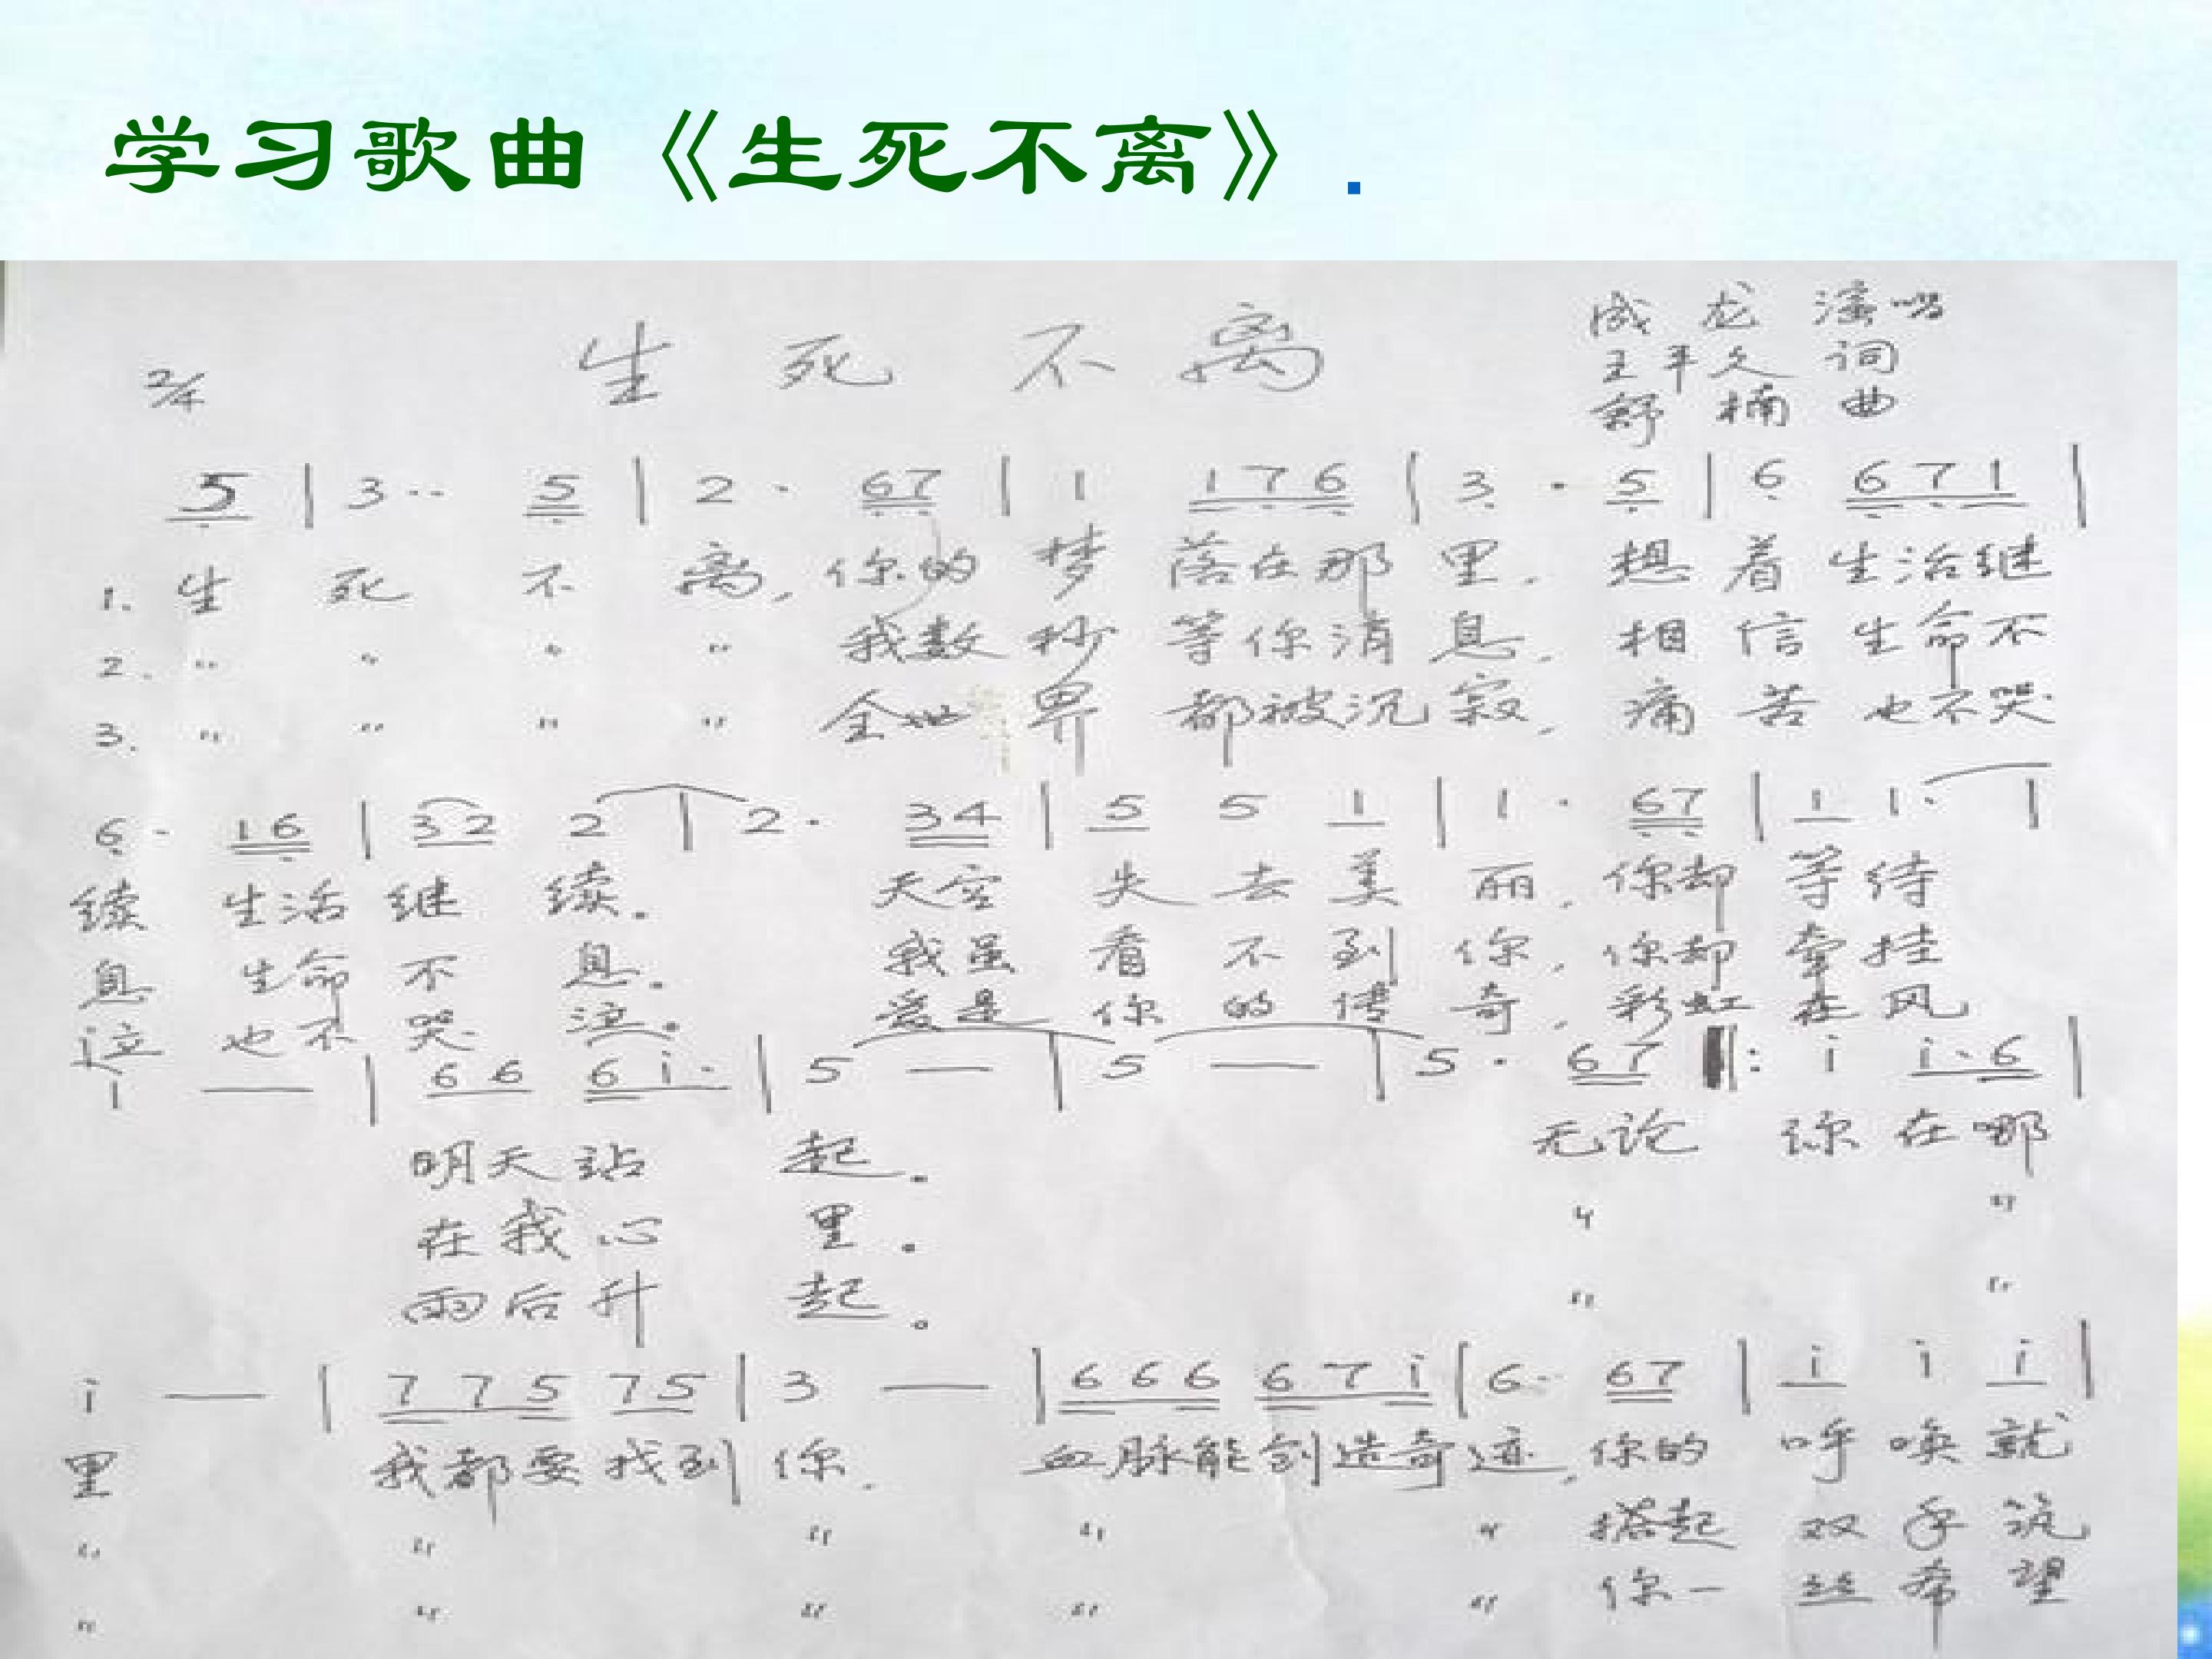 学习歌曲《生死不离》.
生 死 不 离
成 龙 演唱
王平久 词
舒 楠 曲
2/4
5 | 3·· 5 | 2· 67 | 1 176 | 3· 5 | 6 671 |
1. 生 死 不 离, 你的 梦 落在那 里. 想 着 生活继
2. " " " " 我数 秒 等你消 息. 相 信 生命不
3. " " " " 全世 界 都被沉 寂. 痛 苦 也不哭
6· 16 | 32 2 | 2· 34 | 5 5 1 | 1· 67 | 1 1· |
续 生活 继 续. 天空 失 去 美 丽, 你却 等 待
息 生命 不 息. 我虽 看 不 到 你, 你却 牵 挂
泣 也不 哭 泣. 爱是 你 的 传 奇, 彩虹 在 风
1 — | 66 6i· | 5 — | 5 — | 5· 67 :‖: i i·6 |
明天站 起.
无论 你 在哪
在我心 里. " "
雨后升 起. " "
i — | 775 75 | 3 — | 666 67i | 6· 67 | i i i |
里 我都要找到 你. 血脉能创造奇迹, 你的 呼 唤 就
" " " " " 搭起 双 手 筑
" " " " " 你一 丝 希 望